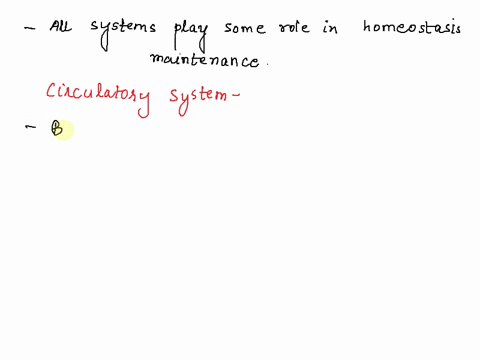 - All systems play some role in homeostasis
maintenance.
Circulatory system-
- B